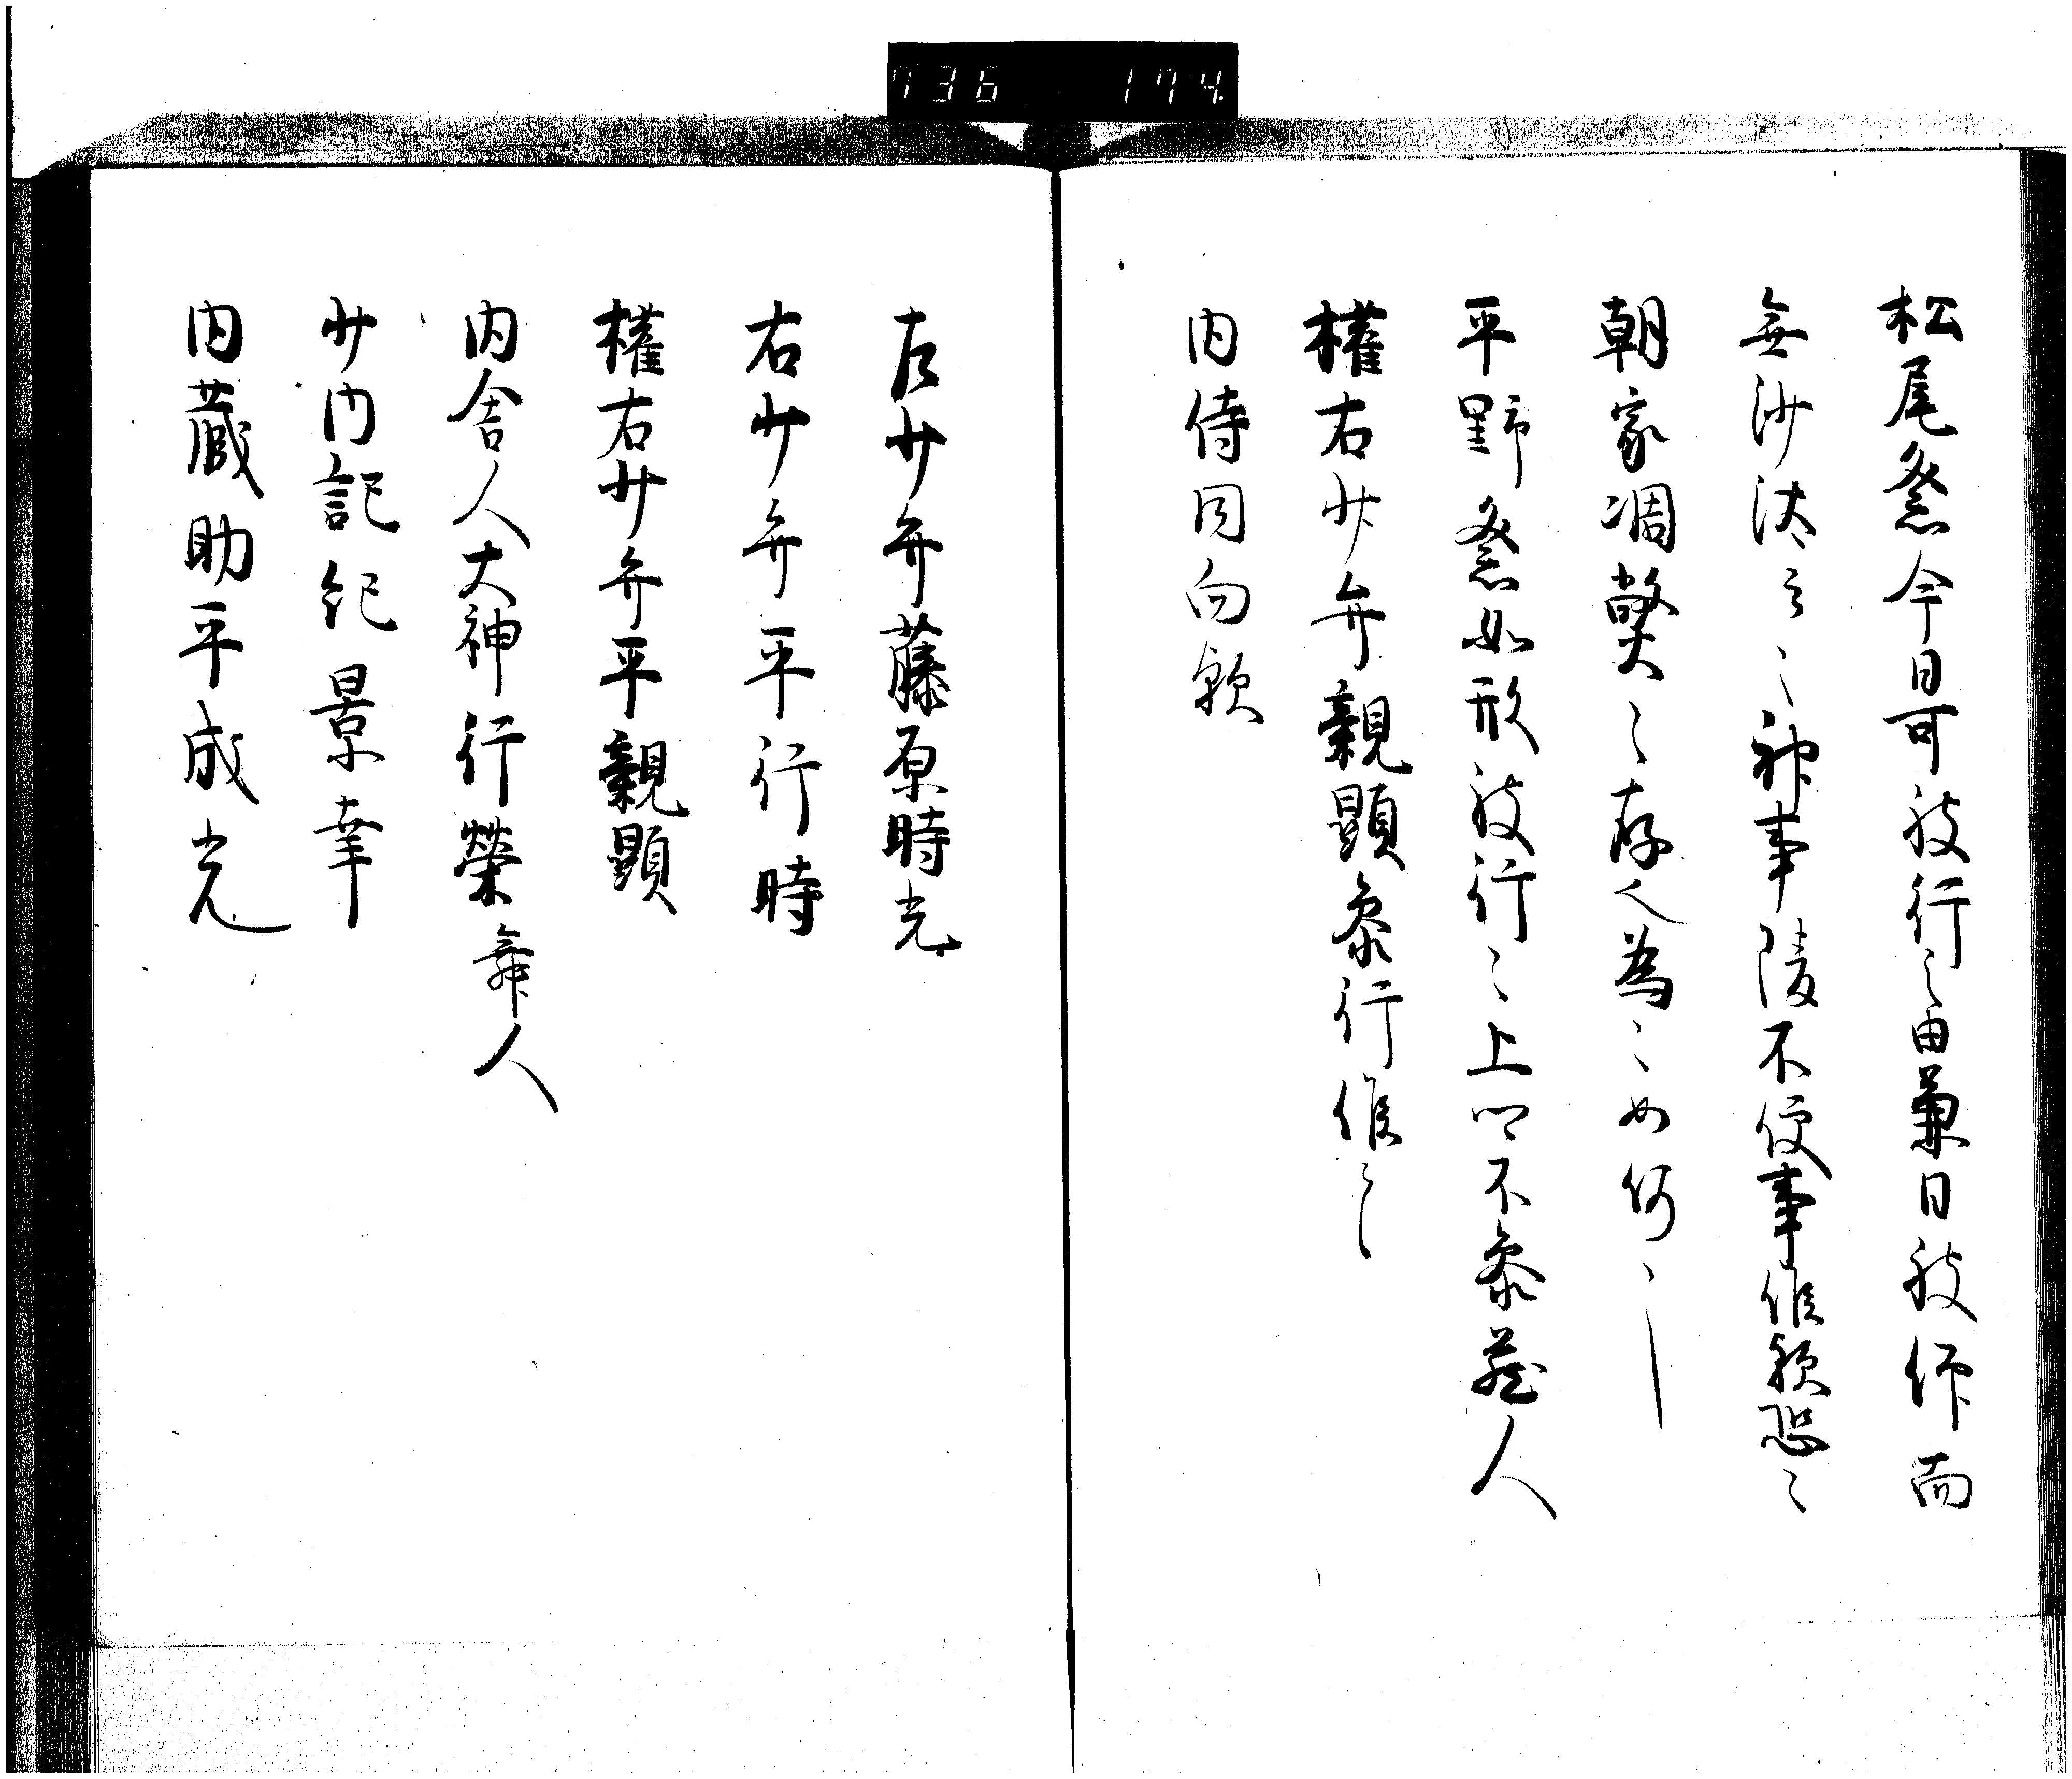 736 174
松尾祭今日可被行之由兼日被仰而
無沙汰云々神事陵不便事候歟恐々
朝家凋弊之存人為之如何々
平野祭如形被行之上卿不参蔵人
権右少弁親顕参行候了
内侍同向歟
左少弁藤原時光
右少弁平行時
権右少弁平親顕
内舎人大神行榮舞人
少内記紀景幸
内蔵助平成光